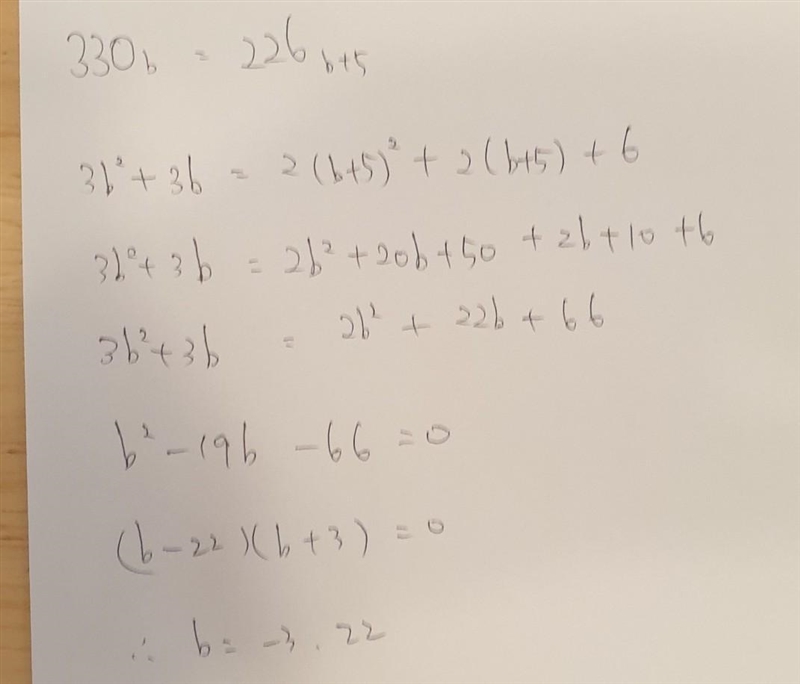 330_b = 226_{b+5}
3b² + 3b = 2(b+5)² + 2(b+5) + 6
3b² + 3b = 2b² + 20b + 50 + 2b + 10 + 6
3b² + 3b = 2b² + 22b + 66
b² - 19b - 66 = 0
(b - 22)(b + 3) = 0
∴ b = -3, 22